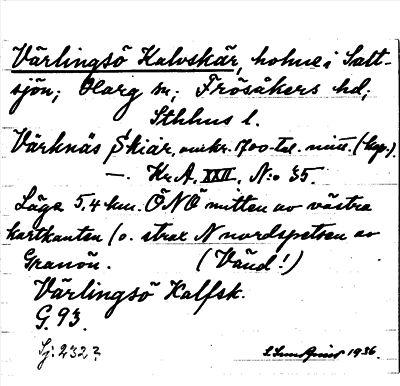 Värlingsö Kalvskär, holme i Salt-
sjön; Öarg sn; Frösåkers hd;
Sthhus l.
Värknäs Skiär, omkr. 700-tal. mitt. (kop.)
—. Kr.A. XXII. N:o 35.
Läge 5,4 km. ÖNÖ mitten av västra
kartkanten / o. strax N nordspetsen av
Granön. (Vänd!)
Värlingsö Kalfsk.
G. 93.
Sj: 232 ?
1936.